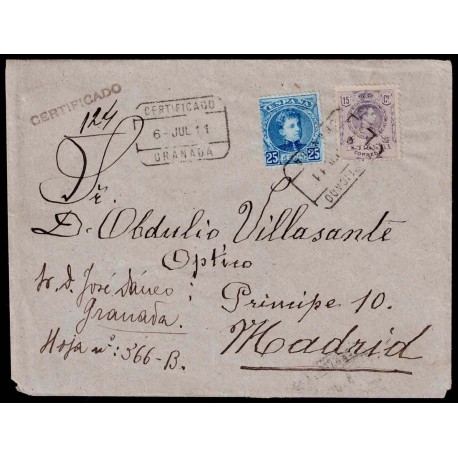 CERTIFICADO
124
CERTIFICADO
6- JUL 11
GRANADA
ESPAÑA
25 25
15 Cs
Sr.
D. Obdulio Villasante
Optico
Príncipe 10.
Madrid
D. José
Granada.
Hoja nº: 366-B.